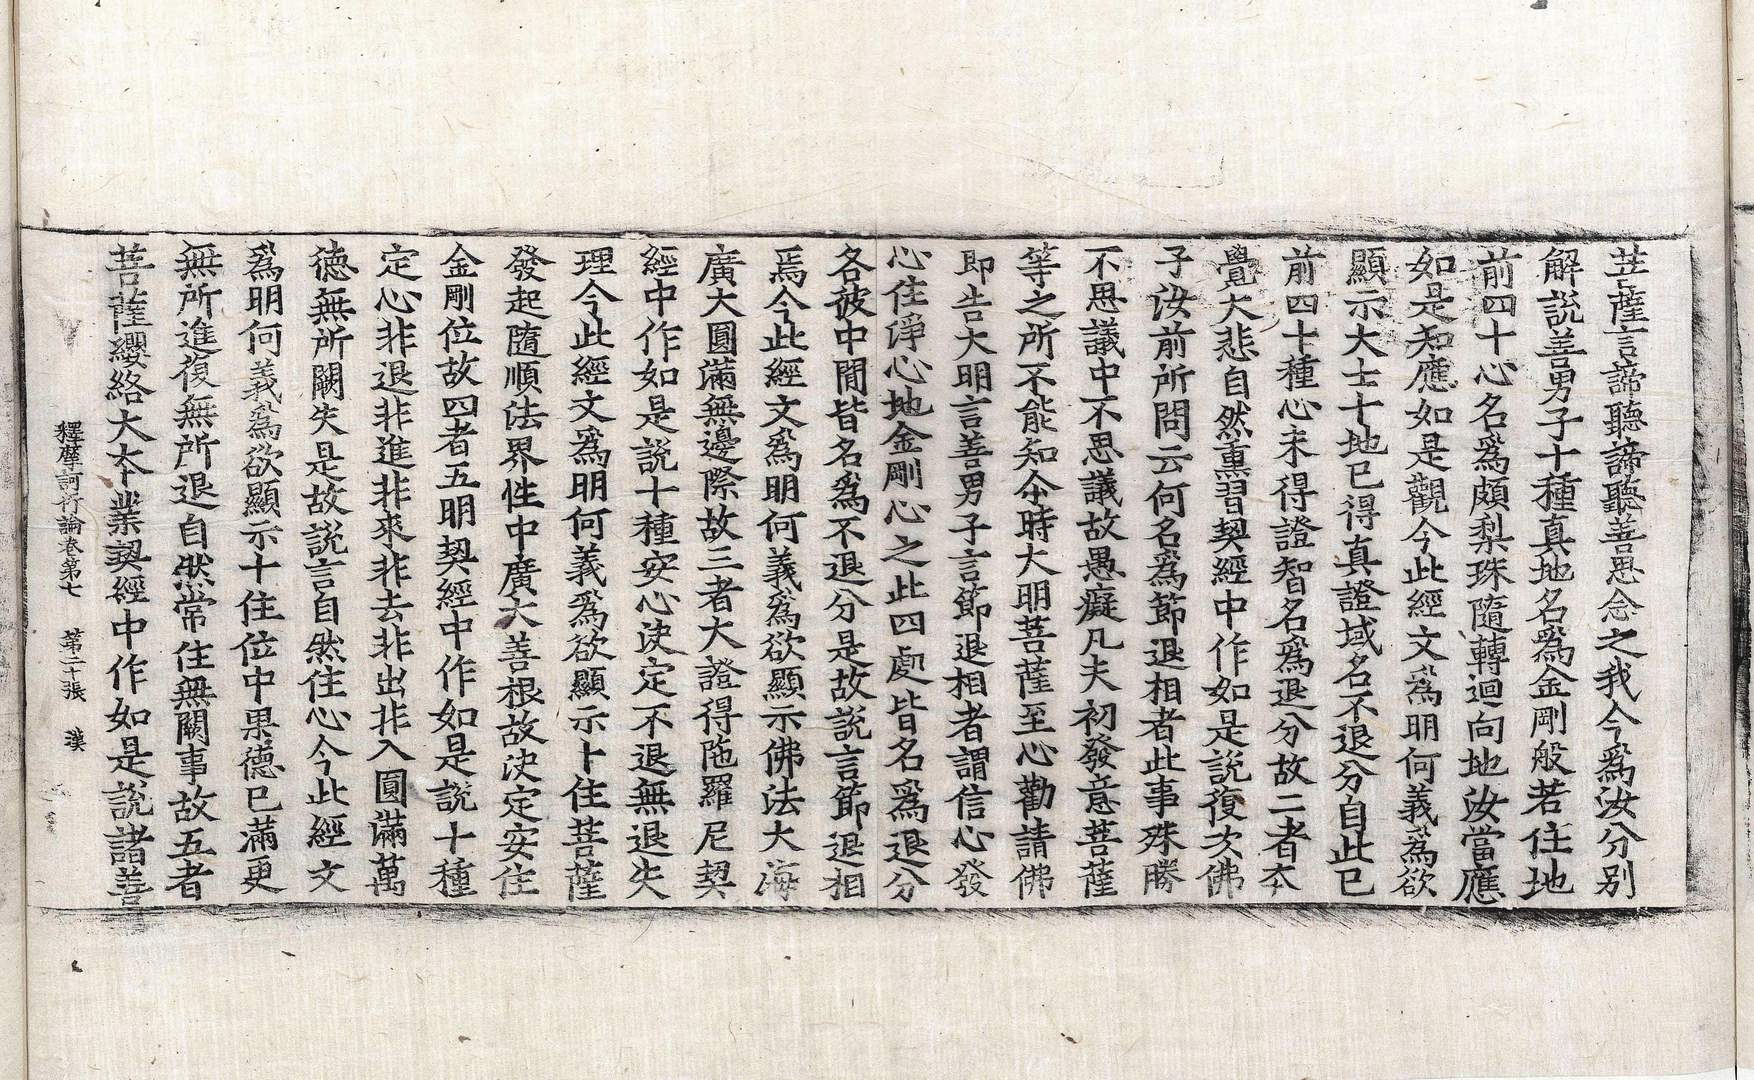 菩薩言諦聽諦聽善思念之我今爲汝分別
解說善男子十種真地名爲金剛般若住地
前四十心名爲頗梨珠隨轉迴向地汝當應
如是知應如是觀今此經文爲明何義爲欲
顯示大士十地已得真證域名不退分自此已
前四十種心未得證智名爲退分故二者本
覺大悲自然熏習契經中作如是說復次佛
子汝前所問云何名爲節退相者此事殊勝
不思議中不思議故愚癡凡夫初發意菩薩
等之所不能知尒時大明菩薩至心勸請佛
即告大明言善男子言節退相者謂信心發
心住淨心地金剛心之此四處皆名爲退分
各彼中間皆名爲不退分是故說言節退相
焉今此經文爲明何義爲欲顯示佛法大海
廣大圓滿無邊際故三者大證得陁羅尼契
經中作如是說十種安心決定不退無退失
理今此經文爲明何義爲欲顯示十住菩薩
發起隨順法界性中廣大善根故決定安住
金剛位故四者五明契經中作如是說十種
定心非退非進非來非去非出非入圓滿萬
德無所闕失是故說言自然住心今此經文
爲明何義爲欲顯示十住位中果德已滿更
無所進復無所退自然常住無闕事故五者
菩薩纓絡大本業契經中作如是說諸善
釋摩訶衍論卷第七　第二十張　漢